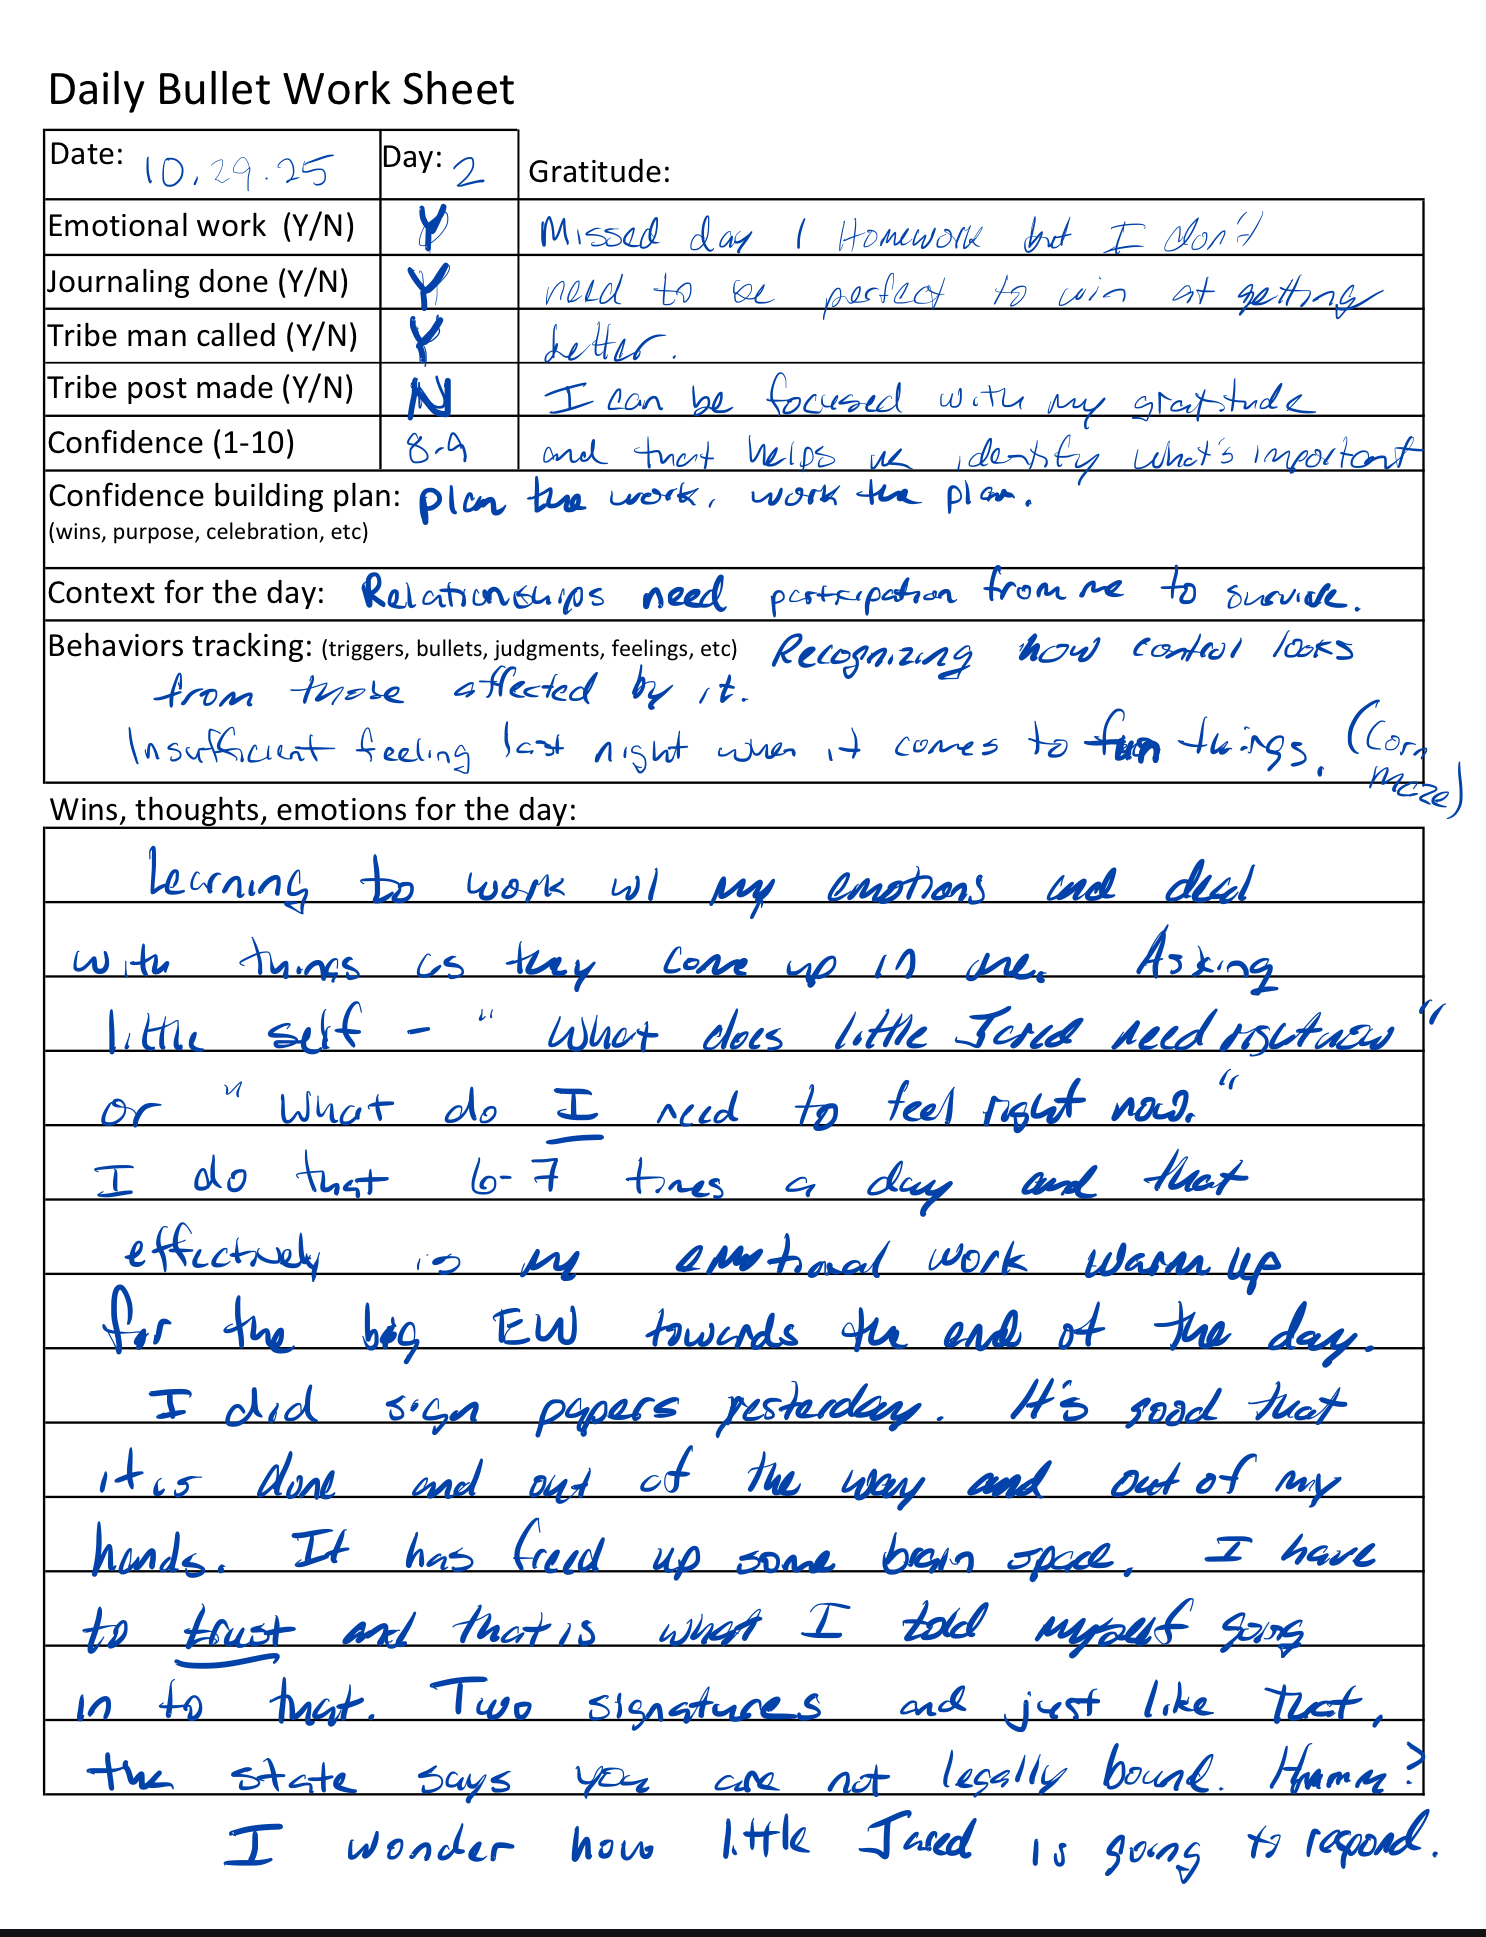 Daily Bullet Work Sheet
Date: 10.29.25 Day: 2 Gratitude:
Emotional work (Y/N) Y Missed day 1 Homework but I don't
Journaling done (Y/N) Y need to be perfect to win at getting
Tribe man called (Y/N) Y better.
Tribe post made (Y/N) N I can be focused with my gratitude
Confidence (1-10) 8-9 and that helps me identify what's important
Confidence building plan: plan the work, work the plan.
(wins, purpose, celebration, etc)
Context for the day: Relationships need participation from me to survive.
Behaviors tracking: (triggers, bullets, judgments, feelings, etc) Recognizing how control looks
from those affected by it.
Insufficient feeling last night when it comes to fun things. (Corn
maze)
Wins, thoughts, emotions for the day:
Learning to work w/ my emotions and deal
with things as they come up in me. Asking
little self - "What does little Jared need right now"
or "What do I need to feel right now."
I do that 6-7 times a day and that
effectively is my emotional work warm up
for the big EW towards the end of the day.
I did sign papers yesterday. It's good that
it is done and out of the way and out of my
hands. It has freed up some brain space. I have
to trust and that is what I told myself going
in to that. Two signatures and just like that,
the state says you are not legally bound. Hmmm?
I wonder how little Jared is going to respond.